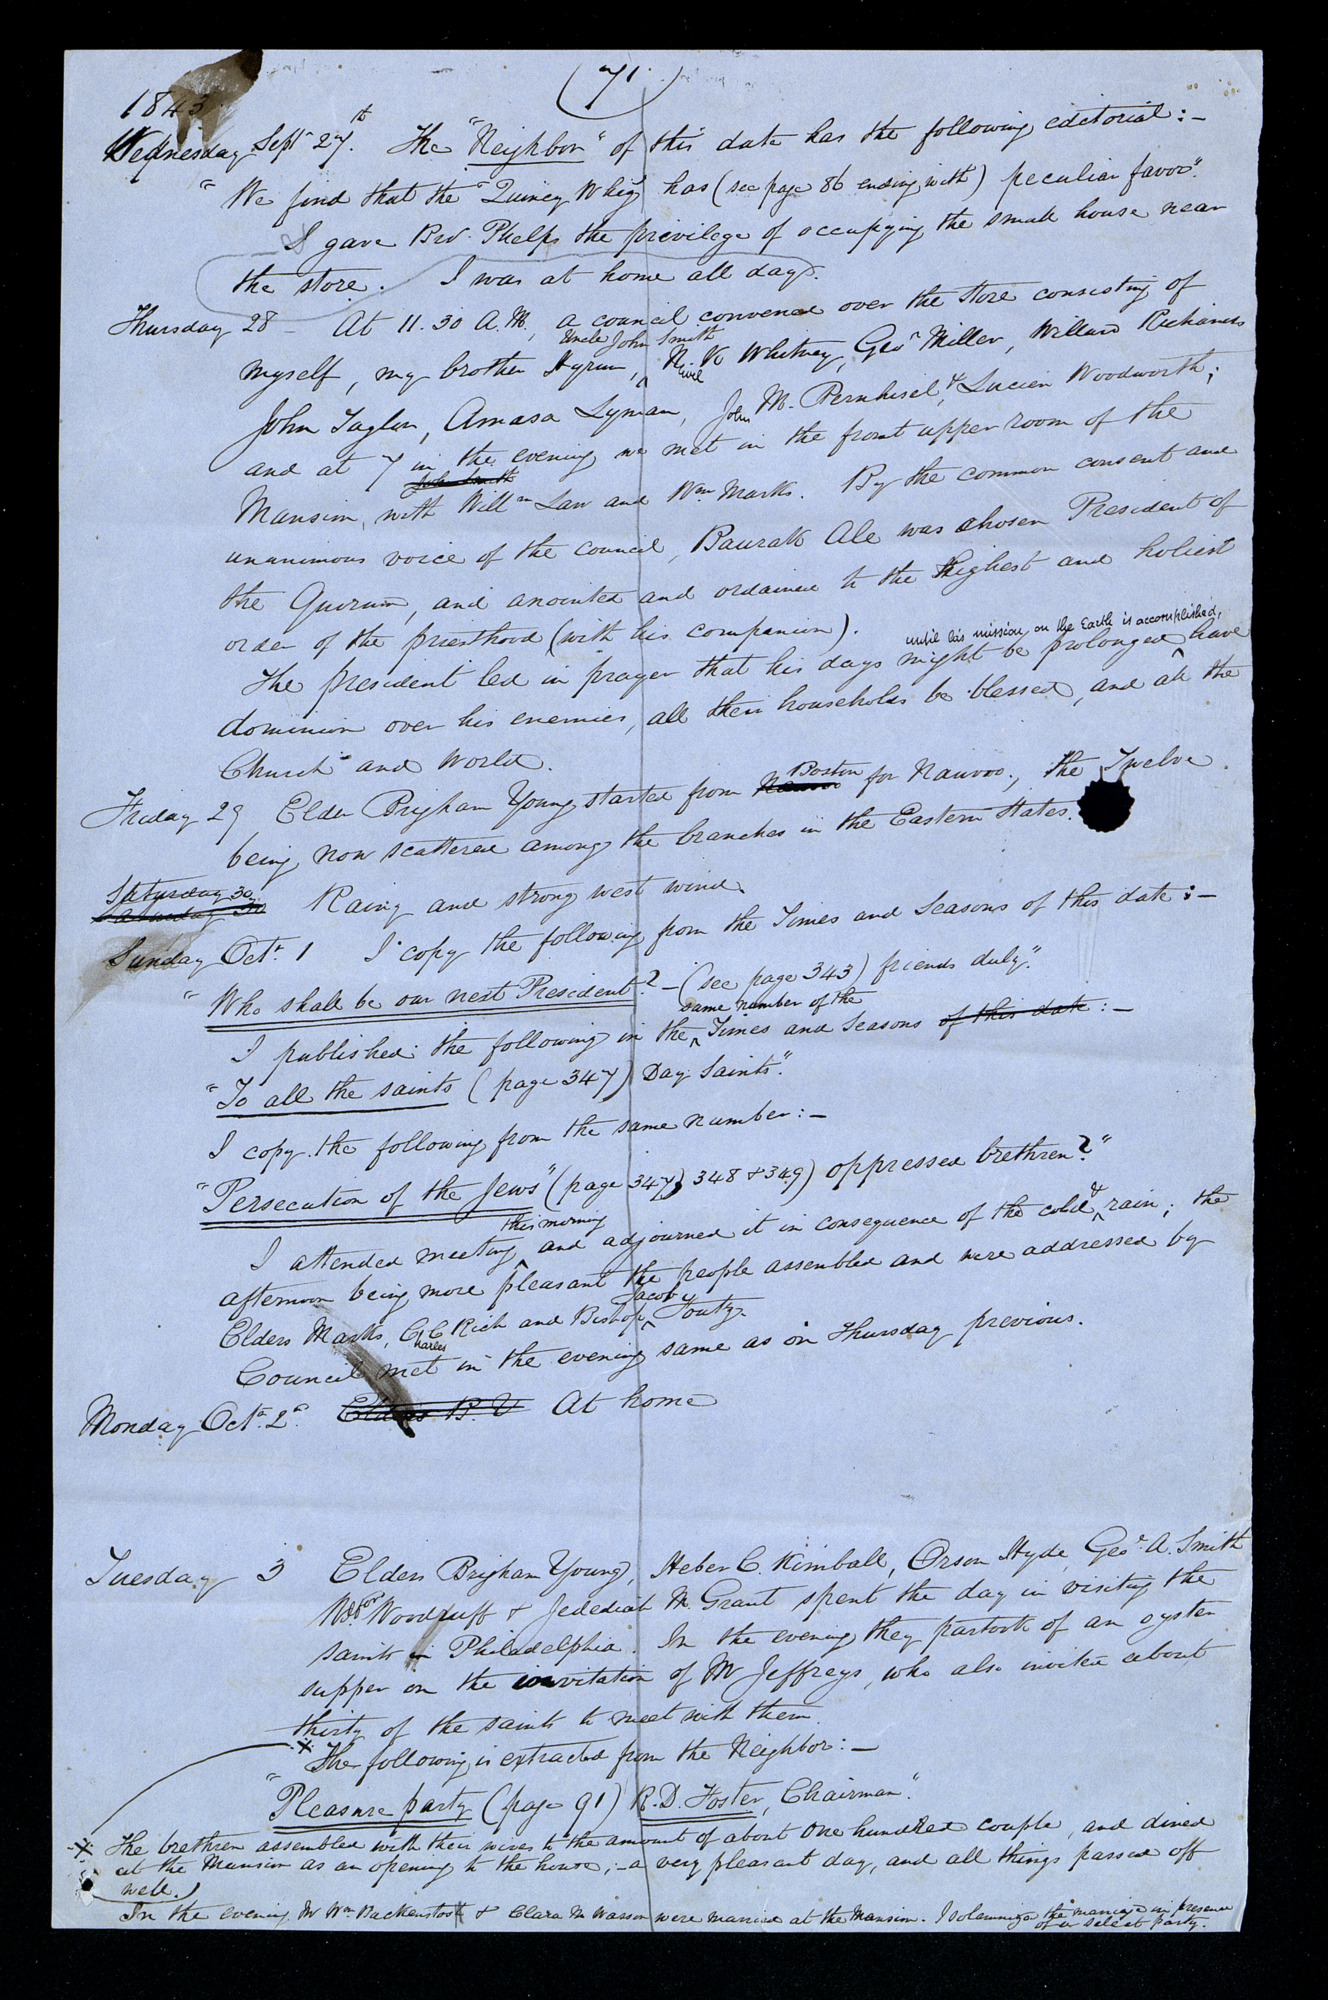 (71)
1843.
Wednesday Sept 27th. The "Neighbor" of this date has the following editorial:—
"We find that the "Quincy Whig" has (see page 86 ending with) peculiar favor."
I gave Bro. Phelps the privilege of occupying the small house near
the store. I was at home all day.
Thursday 28 — At 11.30 A.M., a council convened over the store consisting of
Uncle John Smith
myself, my brother Hyrum, ^ Newel K Whitney, Geo. Miller, Willard Richards
John Taylor, Amasa Lyman, John M. Bernhisel, & Lucien Woodworth;
and at 7 in the evening we met in the front upper room of the
John Smith
Mansion, with Willm Law and Wm Marks. By the common consent and
unanimous voice of the council, Baurak Ale was chosen President of
the Quorum, and anointed and ordained to the highest and holiest
order of the priesthood (with his companion).
until his mission on the Earth is accomplished,
The president led in prayer that his days might be prolonged ^ have
dominion over his enemies, all their households be blessed, and all the
Church and World.
Boston
Friday 29 Elder Brigham Young started from Nauvoo for Nauvoo, the Twelve
being now scattered among the branches in the Eastern States.
Saturday 30
Saturday 30 Rainy and strong west wind.
Sunday Oct. 1 I copy the following from the Times and Seasons of this date:—
"Who shall be our next President? — (see page 343) friends duly."
same number of the
I published the following in the ^ Times and Seasons of this date:—
"To all the saints (page 347) Day Saints."
I copy the following from the same number:—
"Persecution of the Jews" (page 347, 348 & 349) oppressed brethren?"
this morning &
I attended meeting ^ and adjourned it in consequence of the cold ^ rain; the
afternoon being more pleasant the people assembled and were addressed by
Jacob
Elders Marks, Charles C Rich and Bishop ^ Foutz.
Council met in the evening same as on Thursday previous.
Monday Oct. 2d Elders B. Y At home
Tuesday 3 Elders Brigham Young, Heber C. Kimball, Orson Hyde, Geo. A. Smith
Wilfor Woodruff & Jedediah M Grant spent the day in visiting the
saints in Philadelphia. In the evening they partook of an oyster
supper on the invitation of Mr Jeffreys, who also invited about
thirty of the saints to meet with them.
× The following is extracted from the Neighbor:—
"Pleasure party (page 91) R. D. Foster, Chairman".
× The brethren assembled with their wives to the amount of about one hundred couple, and dined
at the Mansion as an opening to the house; — a very pleasant day, and all things passed off
well.
In the evening Mr Wm Backenstos & Clara M Wasson were married at the Mansion. I solemnized the marriage in presence
of a select party.